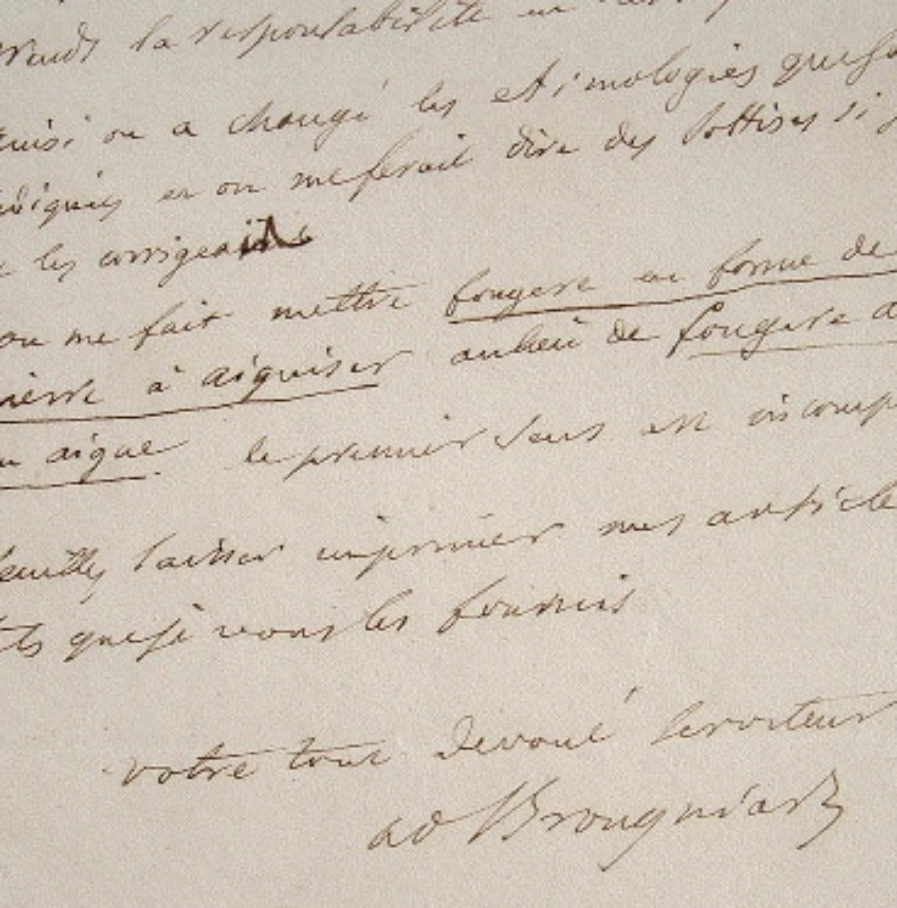 la responsabilité en
ainsi on a changé les etimologies que j'a
indiqués et on me ferait dire des sottises si j
les corrigeais
on me fait mettre fougere en forme de
pierre à aiguiser aulieu de fougere a
aigue le premier sens est incomp
veuillez laisser imprimer mes article
tels que je vous les fournis
votre tout devoué serviteur
ad Brongniart